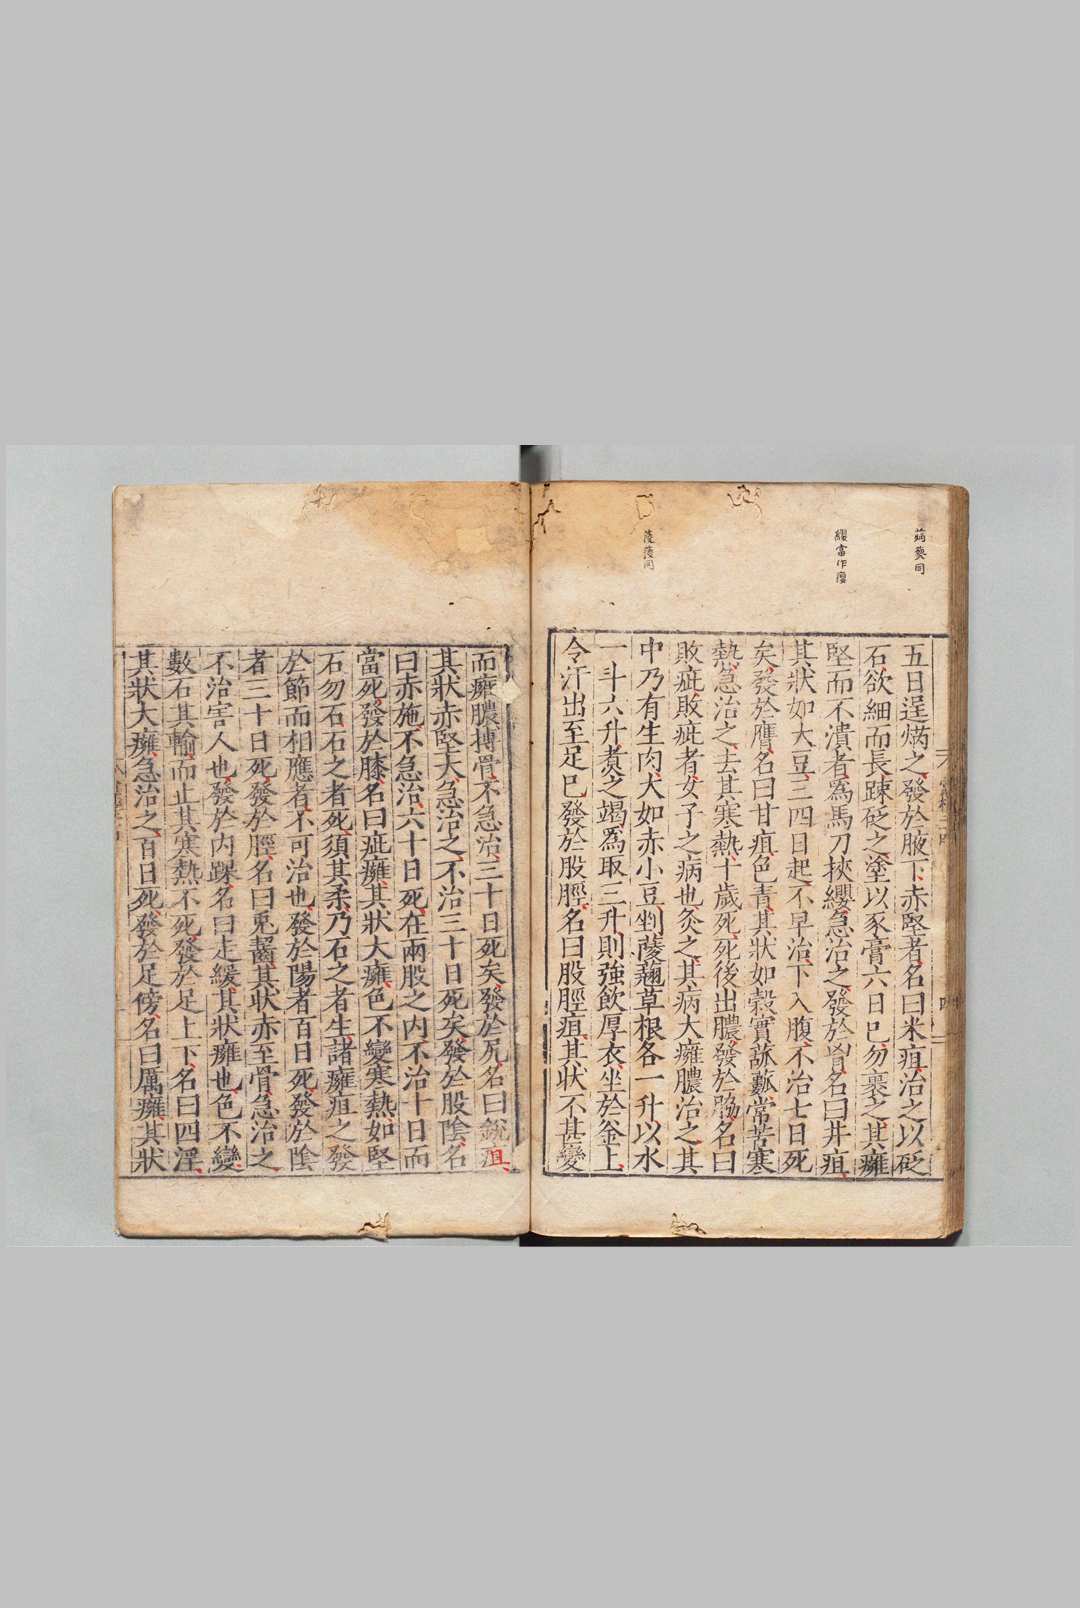 蒳熱同
纓當作癭
䔖陵同
五日逞焫之發於腋下赤堅者名曰米疽治之以砭
石欲細而長踈砭之塗以豕膏六日巳勿裹之其癰
堅而不潰者爲馬刀挾纓急治之發於胷名曰井疽
其狀如大豆三四日起不早治下入腹不治七日死
矣發於膺名曰甘疽色青其狀如榖實䔖蓏常苦寒
熱急治之去其寒熱十歲死死後出膿發於脇名曰
敗疵敗疵者女子之病也灸之其病大癰膿治之其
中乃有生肉大如赤小豆剉䔖翹草根各一升以水
一斗六升煑之竭爲取三升則強飲厚衣坐於釜上
令汗出至足巳發於股脛名曰股脛疽其狀不甚變
而癰膿搏骨不急治三十日死矣發於尻名曰銳疽
其狀赤堅大急治之不治三十日死矣發於股陰名
曰赤施不急治六十日死在兩股之内不治十日而
當死發於膝名曰疵癰其狀大癰色不變寒熱如堅
石勿石石之者死須其柔乃石之者生諸癰疽之發
於節而相應者不可治也發於陽者百日死發於陰
者三十日死發於脛名曰兎齧其狀赤至骨急治之
不治害人也發於内踝名曰走緩其狀癰也色不變
數石其輸而止其寒熱不死發於足上下名曰四淫
其狀大癰急治之百日死發於足傍名曰厲癰其狀